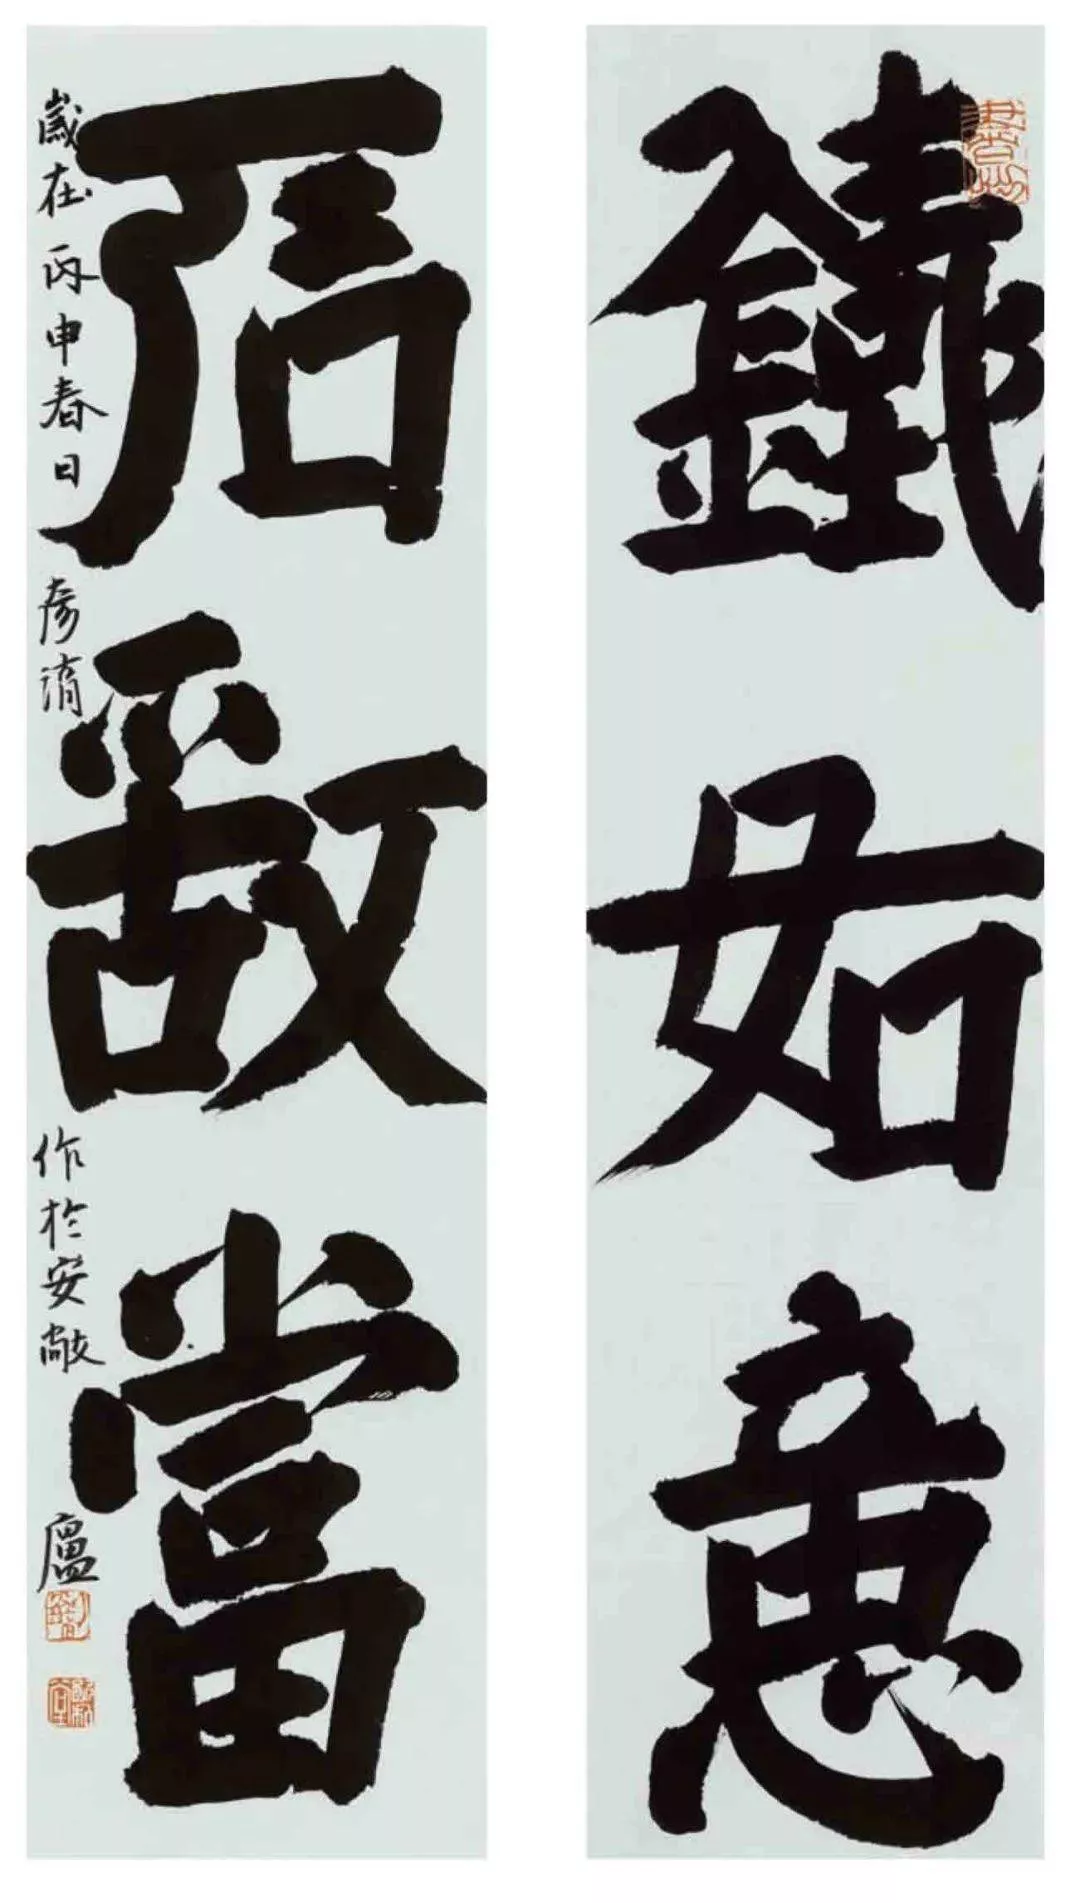 鐵如意
石敢當
歲在丙申春日彥作於安敞廬